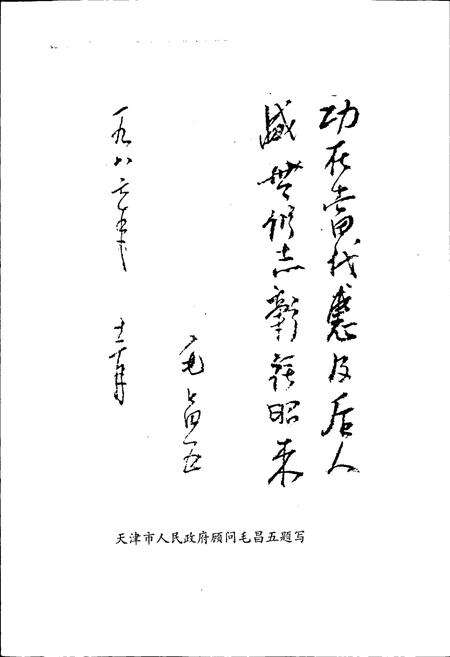 功在当代惠及后人
盛世修志彰往昭来
毛昌五
一九八六年
十二月
天津市人民政府顾问毛昌五题写